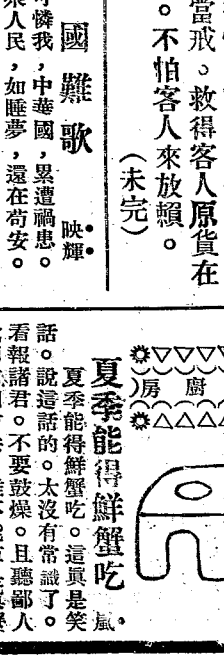 當戒。救得客人原貨在
。不怕客人來放賴。
（未完）
國難歌
映輝
憐我，中華國，累遭禍患。
人民，如睡夢，還在苟安。
廚房
夏季能得鮮蟹吃
嵐
夏季能得鮮蟹吃。這眞是笑
話。說這話的。太沒有常識了。
看報諸君。不要鼓燥。且聽鄙人